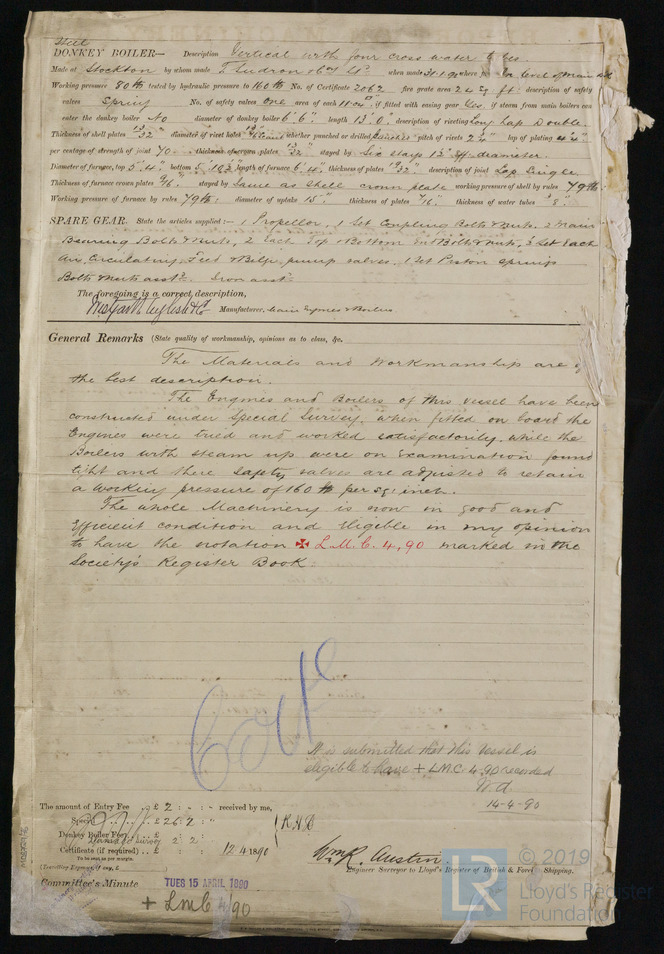 Steel
DONKEY BOILER— Description Vertical with four cross water tubes.
Made at Stockton by whom made when made where fixed
Working pressure 80 lb tested by hydraulic pressure to 160 lb No. of Certificate 2062 fire grate area 24 sq ft description of safety
valves Spring No. of safety valves one area of each if fitted with easing gear Yes if steam from main boilers can
enter the donkey boiler No diameter of donkey boiler 6' 6" length 13' 0" description of riveting Long Lap Double
Thickness of shell plates 13/32 diameter of rivet holes whether punched or drilled punched pitch of rivets lap of plating
per centage of strength of joint 70 thickness of crown plates 13/32 stayed by Six stays diameter.
Diameter of furnace, top 5' 4" bottom length of furnace 6' 4" thickness of plates description of joint Lap Single
Thickness of furnace crown plates stayed by Same as Shell crown plate working pressure of shell by rules 79 lb
Working pressure of furnace by rules 79 lb diameter of uptake 15" thickness of plates thickness of water tubes
SPARE GEAR. State the articles supplied:— 1 Propeller, 1 Set Coupling Bolts & Nuts, 2 Main
Bearing Bolts & Nuts, 2 each Top & Bottom End Bolts & Nuts, Set each
Air, Circulating, Feed & Bilge pump valves, 1 Set Piston Springs
Bolts & Nuts asstd. Iron asstd.
The foregoing is a correct description,
Manufacturer. Main Engines & Boilers
General Remarks (State quality of workmanship, opinions as to class, &c.
The Materials and Workmanship are of
the best description.
The Engines and Boilers of this vessel have been
constructed under Special Survey, when fitted on board the
Engines were tried and worked satisfactorily, while the
Boilers with steam up were on examination found
tight and there safety valves are adjusted to retain
a working pressure of 160 lb per sq: inch.
The whole Machinery is now in good and
efficient condition and eligible in my opinion
to have the notation ✠ L.M.C. 4,90 marked in the
Society's Register Book.
It is submitted that this vessel is
eligible to have + LMC. 4.90 recorded
14-4-90
The amount of Entry Fee .. £ 2 : - : - received by me,
Special .. £ 26 : 2 : "
Donkey Boiler Fee .. £
Certificate (if required) .. £ : : 12.4.1890
To be sent as per margin.
(Travelling Expenses, if any, £ )
Wm R. Austin
Engineer Surveyor to Lloyd's Register of British & Foreign Shipping.
Committee's Minute TUES 15 APRIL 1890
+ LMC 4/90
LR
© 2019
Lloyd's Register
Foundation